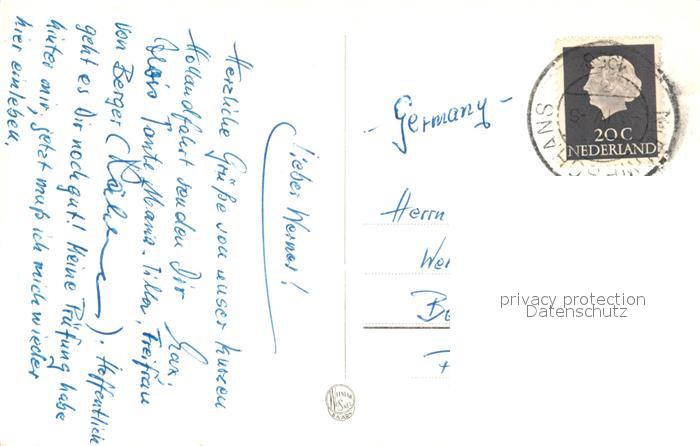 Lieber Werner!
Herzliche Grüße von unser kurzen
Hollandfahrt senden Dir Max,
Tante Maria, Tilla, Freifrau
von Berger (). Hoffentlich
geht es Dir noch gut! Meine Prüfung habe
hinter mir, jetzt muß ich mich wieder
hier einleben.
- Germany -
Herrn
We
Be
20 C
NEDERLAND
privacy protection
Datenschutz